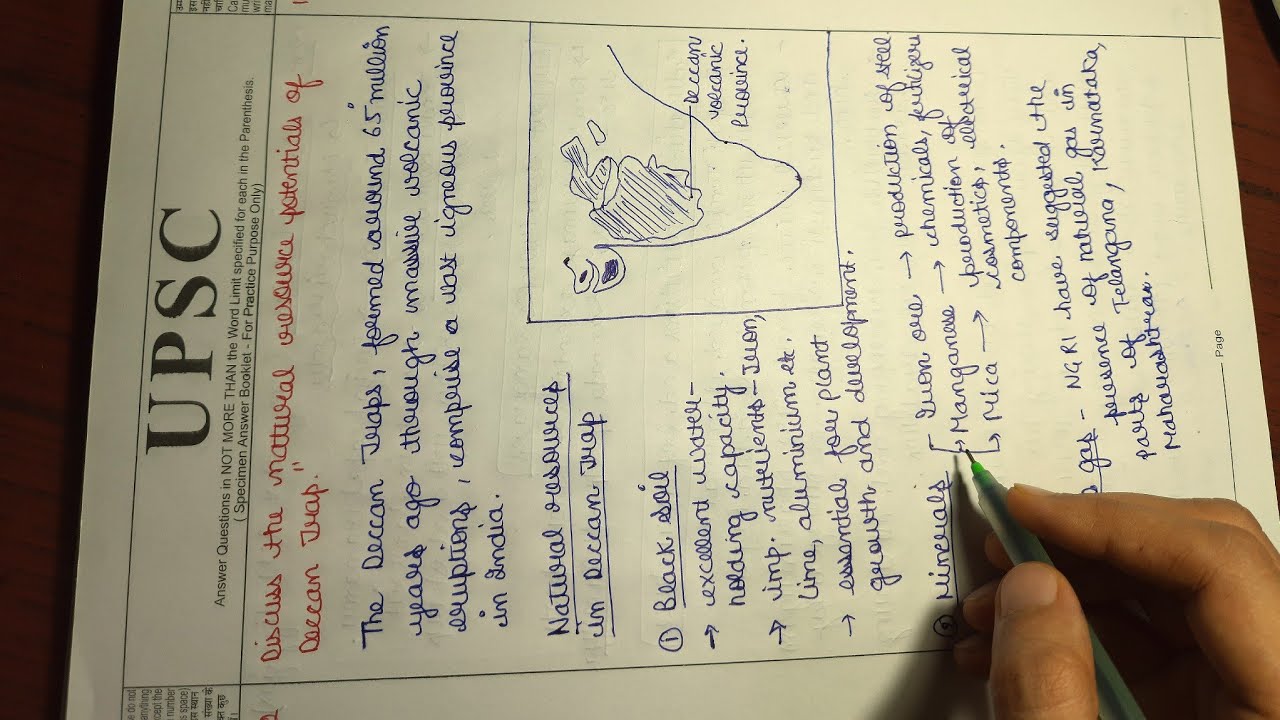 UPSC
Answer Questions in NOT MORE THAN the Word Limit specified for each in the Parenthesis.
( Specimen Answer Booklet - For Practice Purpose Only)
Discuss the natural resource potentials of
Deccan Trap."
The Deccan Traps, formed around 65 million
years ago through massive volcanic
eruptions, comprise a vast igneous province
in India.
Natural resources
in Deccan Trap
Deccan
volcanic
Province.
① Black soil
→ excellent water-
holding capacity.
→ imp. nutrients - Iron,
lime, aluminium etc.
→ essential for plant
growth and development.
② Minerals
Iron ore → production of steel
→ Manganese → chemicals, fertilizers
→ Mica → production of
cosmetics, electrical
components.
gas - NGRI have suggested the
presence of natural gas in
parts of Telangana, Karnataka,
Maharashtra.
Page